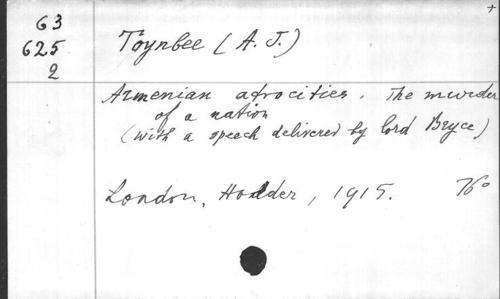 63
625
2
Toynbee (A. J.)
Armenian atrocities. The murder
of a nation
(with a speech delivered by lord Bryce)
London, Hodder, 1915.